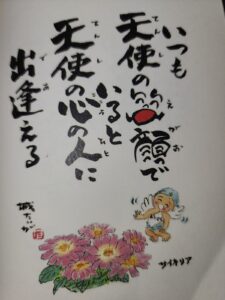 いつも
天使の笑顔で
いると
天使の心の人に
出逢える
サイネリア